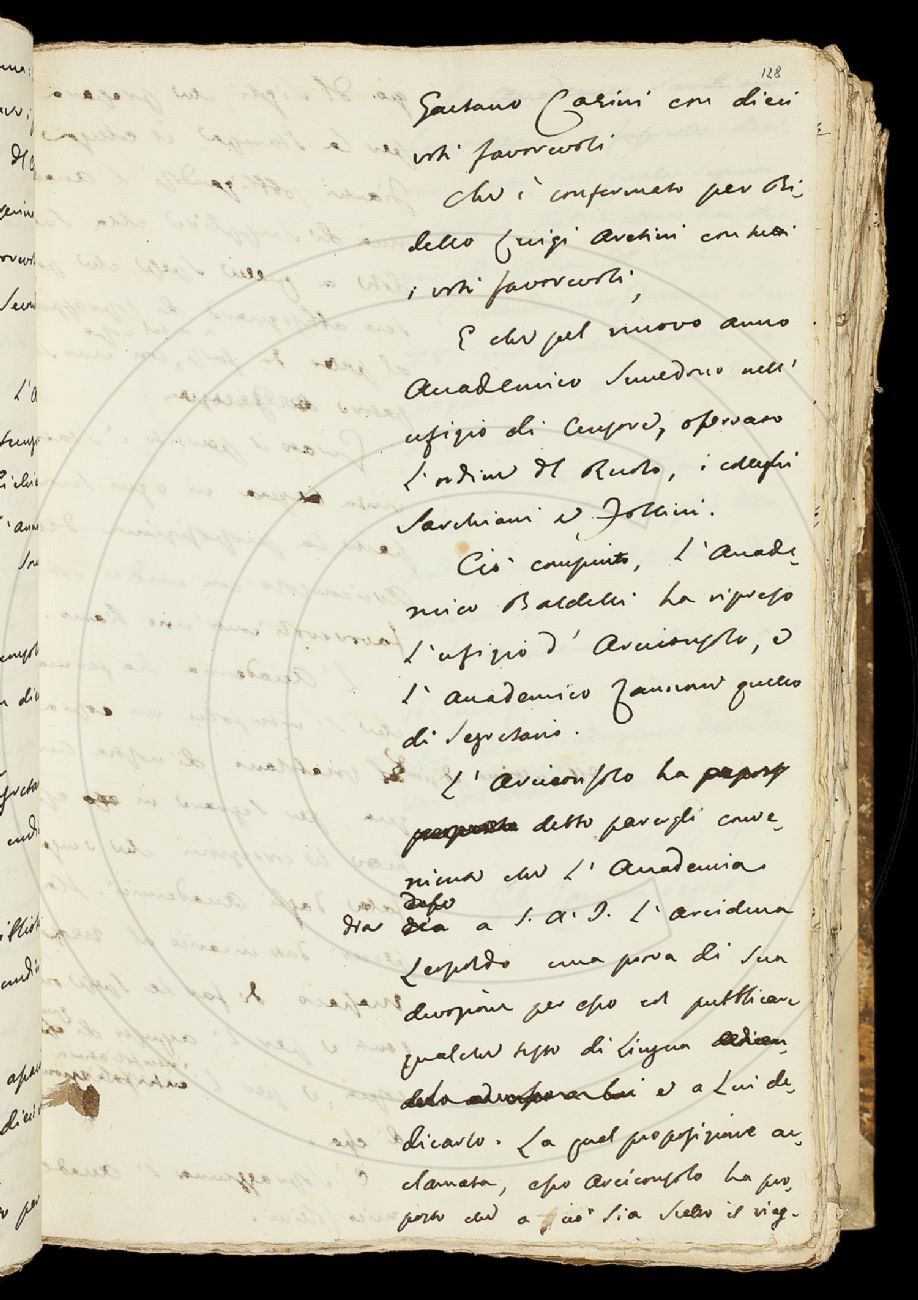 128
Gaetano Carini con dieci
voti favorevoli
Che è confermato per Bi-
dello Luigi Aretini con tutti
i voti favorevoli,
E che pel nuovo anno
Accademico succedono nell'
ufizio di Censore, osservato
l'ordine del Ruolo, i colleghi
Sarchiani e Follini.
Ciò compiuto, l'Accade-
mico Baldelli ha ripreso
l'ufizio d'Arciconsolo, e
l'Accademico Zannoni quello
di Segretario.
L'Arciconsolo ha
detto parergli conve-
niente che l'Accademia
desse
dia a S. A. I. l'Arciduca
Leopoldo una prova di sua
devozione per esso col pubblicare
qualche testo di Lingua
e a Lui de-
dicarlo. La qual proposizione ac-
clamata, esso Arciconsolo ha pro-
posto che a ciò sia scelto il viag-